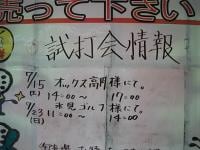 売って下さい
試打会情報
7/15 オックス高岡様にて。
(土) 14:00〜 17:00
7/23 氷見ゴルフ様にて。
(日) 11:00〜 14:00